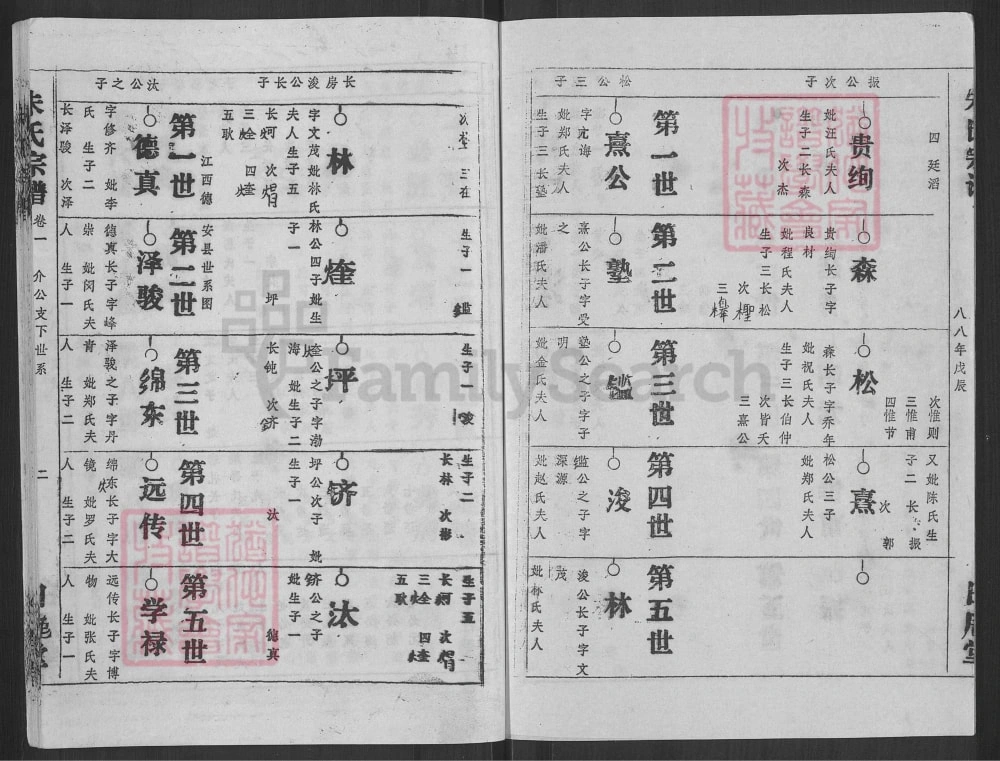 八八年戊辰
四 廷滔
振公次子
贵绚
妣汪氏夫人
生子二长森
次杰
森
贵绚长子字
良材
妣程氏夫人
生子三长松
次樫
松
森长子字乔年
妣祝氏夫人
生子三长伯仲
次皆夭
三熹公
次惟则
三惟甫
四惟节
熹
松公三子
妣郑氏夫人
又妣陈氏生
子二长振
次郭
松公三子
第一世
熹公
字亢诲
妣郑氏夫人
生子三长塾
第二世
塾
熹公长子字受
之
妣潘氏夫人
第三世
鑑
塾公之子字子
明
妣金氏夫人
第四世
浚
鑑公之子字
深源
妣赵氏夫人
第五世
林
浚公长子字文
茂
妣林氏夫人
次埜 三在
生子一 鑑
生子一 浚
生子二
长林 次彬
生子五
长炣 次焆
三烇 四煃
五耿
长房浚公长子
林
字文茂妣林氏
夫人生子五
长炣 次焆
三烇 四煃
五耿
煃
林公四子妣生
子一
坪
坪
煃公之子字渤
海 妣生子二
长钝 次济
济
坪公次子 妣
生子一
汰
汰
济公之子
妣生子一
德真
汰公之子
江西德
安县世系图
第一世
德真
字修齐 妣李
氏 生子二
长泽骏 次泽
第二世
泽骏
德真长子字峰
崇 妣闵氏夫
人 生子一
第三世
绵东
泽骏之子字丹
青 妣郑氏夫
人 生子二
第四世
远传
绵东长子字大
镜 妣罗氏夫
人 生子二
第五世
学禄
远传长子字博
物 妣张氏夫
人 生子一
朱氏宗谱
卷一
介公支下世系
二
FamilySearch